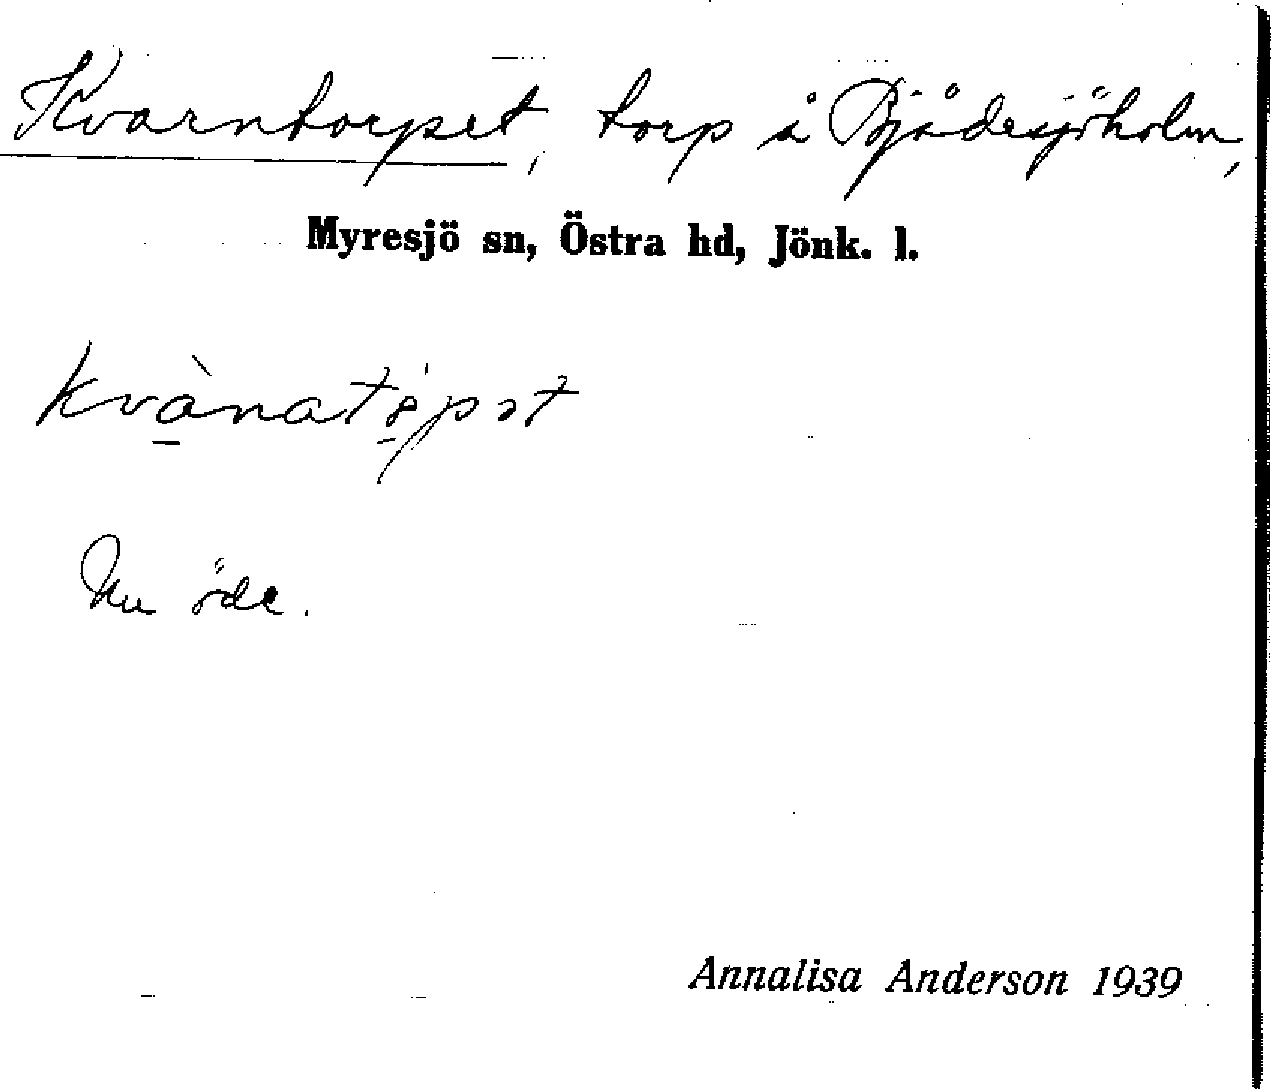 Kvarntorpet, torp å Bjädesjöholm,
Myresjö sn, Östra hd, Jönk. l.
Nu öde.
Annalisa Anderson 1939